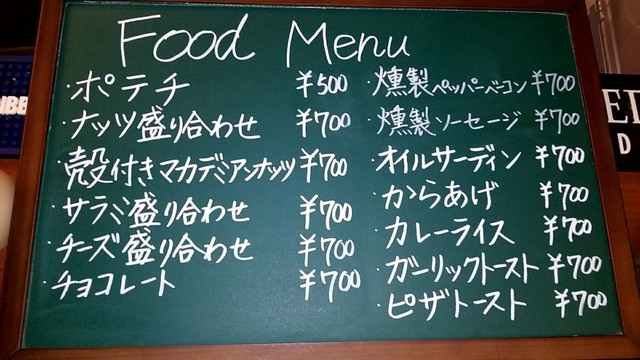 Food Menu
・ポテチ ¥500
・ナッツ盛り合わせ ¥700
・殻付きマカデミアンナッツ ¥700
・サラミ盛り合わせ ¥700
・チーズ盛り合わせ ¥700
・チョコレート ¥700
・燻製ペッパーベーコン ¥700
・燻製ソーセージ ¥700
・オイルサーディン ¥700
・からあげ ¥700
・カレーライス ¥700
・ガーリックトースト ¥700
・ピザトースト ¥700